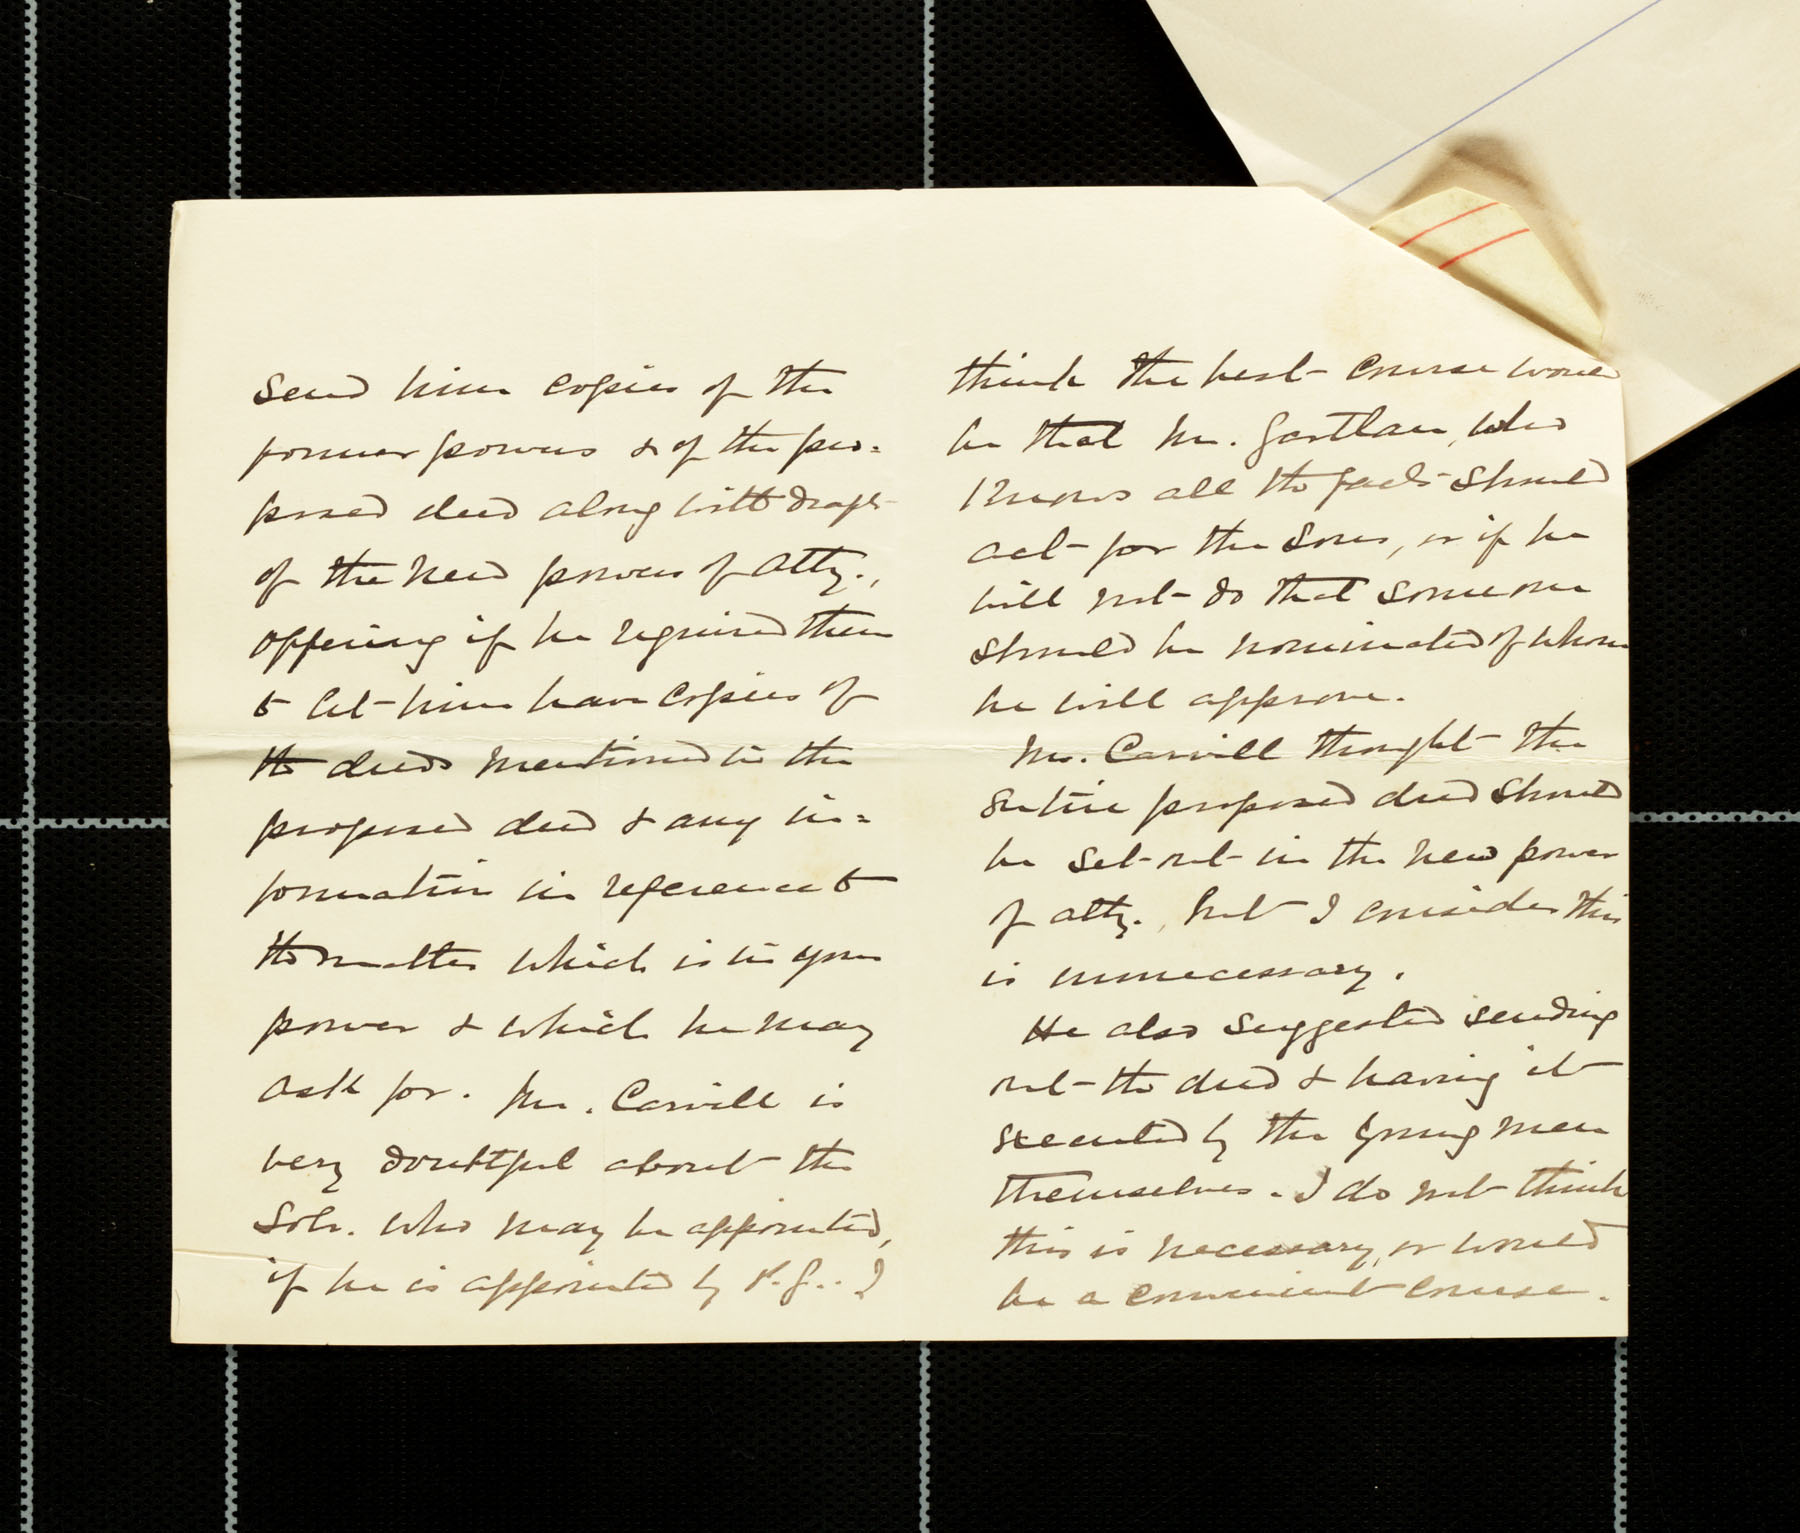 send him copies of the
former powers & of the pro=
posed deed along with draft
of the new powers of atty.,
offering if he required them
to let him have copies of
the deeds mentioned in the
proposed deed & any in=
formation in reference to
the matter which is in your
power & which he may
ask for. Mr. Carvill is
very doubtful about the
Solr. who may be appointed,
if he is appointed by P.G.. I
think the best course would
be that Mr. Gartlan, who
knows all the facts should
act for the sons, or if he
will not do that someone
should be nominated of whom
he will approve.
Mr. Carvill thought the
entire proposed deed should
be set out in the new power
of atty., but I consider this
is unnecessary.
He also suggested sending
out the deed & having it
executed by the young men
themselves. I do not think
this is necessary, or would
be a convenient course.